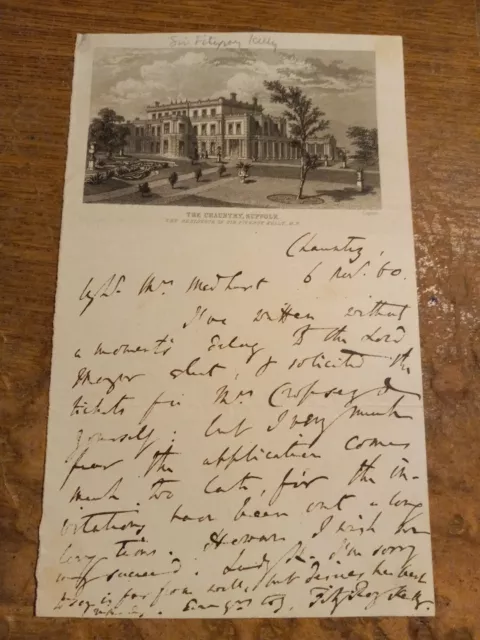 Sir Fitzroy Kelly
THE CHAUNTRY, SUFFOLK.
THE RESIDENCE OF SIR FITZROY KELLY, M.P.
Chauntry,
6 Nov. 60.
Mrs Medhurst
I've written without
a moment's delay to the Lord
Mayor elect, & solicited the
tickets for Mrs Cropsey &
yourself: but I very much
fear the application comes
much too late, for the in-
vitations have been out a long
long time. However I wish
succeed. Lady K. I'm sorry
to say is far from well, but desires her best
Fitzroy Kelly